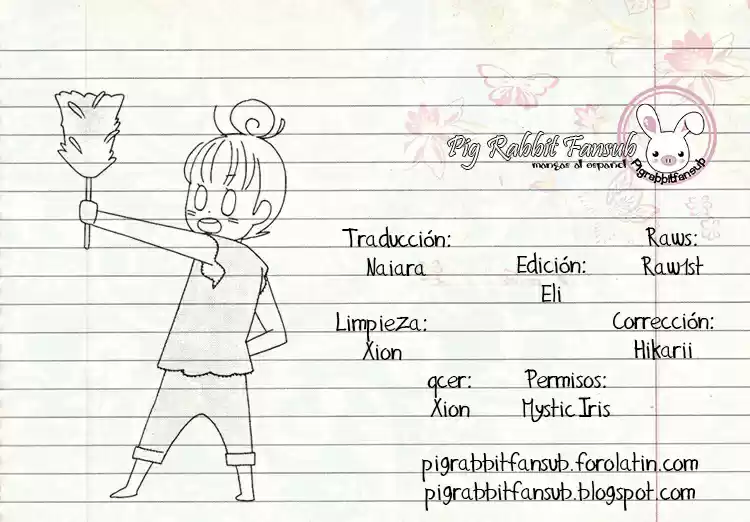 Pig Rabbit Fansub
mangas al español
Pigrabbitfansub
Traducción:
Naiara
Edición:
Eli
Raws:
Raw1st
Limpieza:
Xion
Corrección:
Hikarii
qcer:
Xion
Permisos:
Mystic Iris
pigrabbitfansub.forolatin.com
pigrabbitfansub.blogspot.com